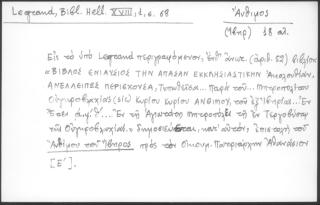 Legrand, Bibl. Hell. XVII, 1, σ. 68
Ἄνθιμος
(Ἴβηρ) 18 αἰ.
Εἰς τὸ ὑπὸ Legrand περιγραφόμενον, (ἀριθ. 52) βιβλίον
"ΒΙΒΛΟΣ ΕΝΙΑΥΣΙΟΣ ΤΗΝ ΑΠΑΣΑΝ ΕΚΚΛΗΣΙΑΣΤΙΚΗΝ Ἀκολουθίαν,
ΑΝΕΛΛΕΙΠΕΣ ΠΕΡΙΕΧΟΥΣΑ, Τυπωθεῖσα... Παρὰ τοῦ... Μητροπολίτου
Οὐγγροβλαχίας (sic) Κυρίου Κυρίου ΑΝΘΙΜΟΥ, τοῦ ἐξ Ἰβηρίας... Ἐν
Ἔτει ͵αψθ΄... Ἐν τῇ Ἁγιωτάτῃ Μητροπόλει τῇ ἐν Τεργοβύστῳ
τῆς Οὐγγροβλαχίας, δημοσιεύεται, κατ' αὐτόν, ἐπιστολὴ τοῦ
Ἀνθίμου τοῦ Ἴβηρος πρὸς τὸν Οἰκουμ. Πατριάρχην Ἀθανάσιον
[Ε΄].